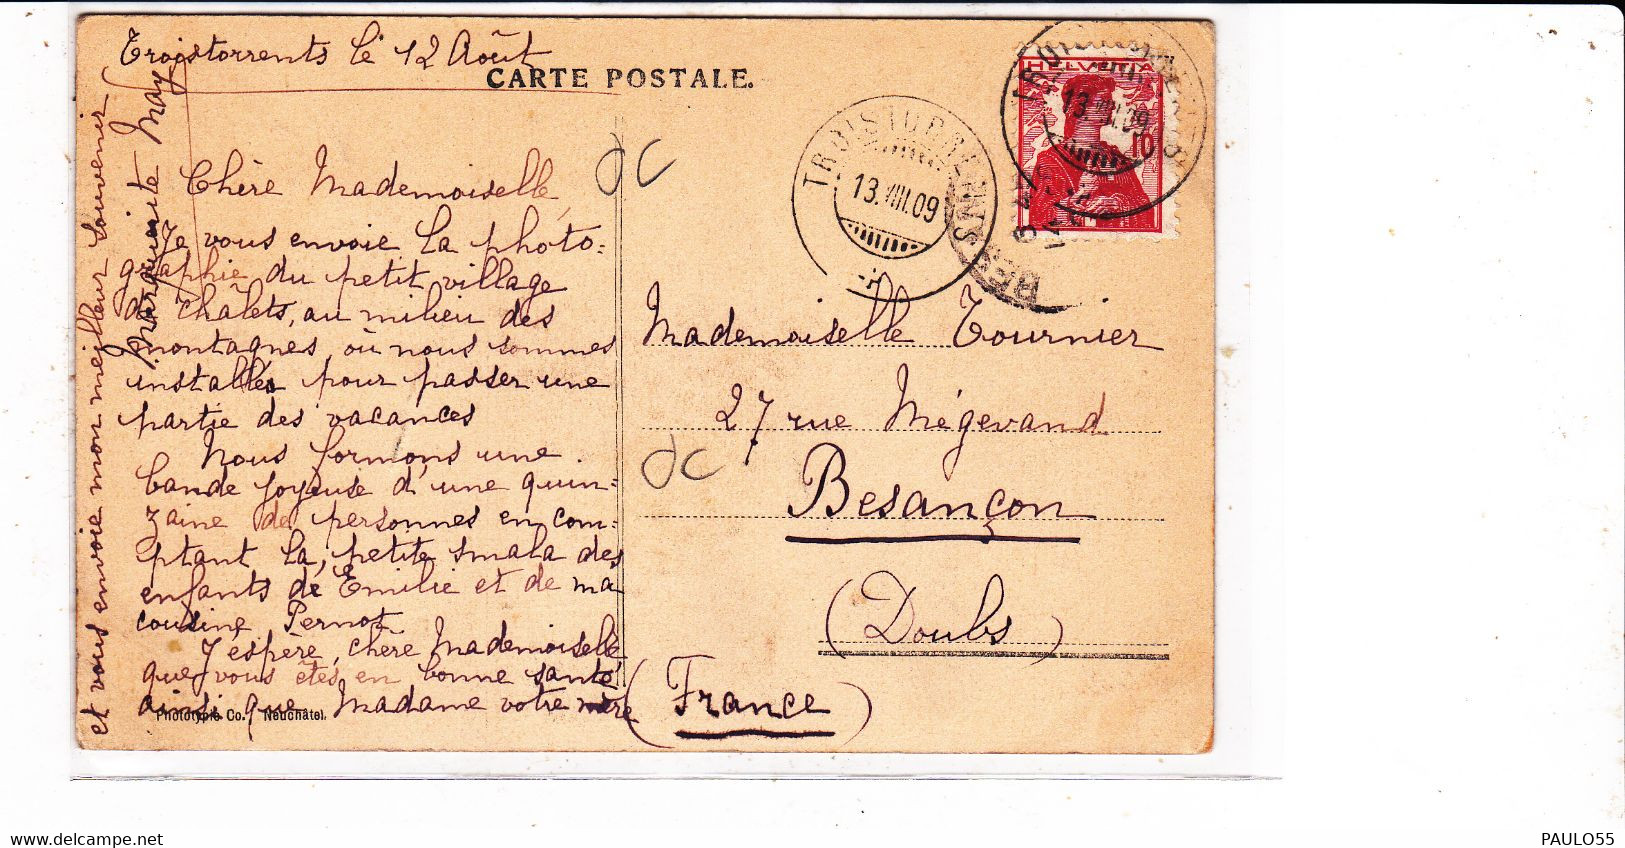 Troistorrents le 12 Août
CARTE POSTALE.
Chère Mademoiselle,
Je vous envoie la photo=
graphie du petit village
de châlets, au milieu des
montagnes, où nous sommes
installés pour passer une
partie des vacances
Nous formons une
bande joyeuse d'une quin=
zaine de personnes en com=
ptant la petite smala des
enfants de Emilie et de ma
cousine Pernot
J'espère, chère Mademoiselle
que vous êtes en bonne santé
ainsi que Madame votre mère
et vous envoie mon meilleur souvenir
Marguerite May
Phototypie Co., Neuchâtel.
HELVETIA
10
TROISTORRENTS
13.VIII.09
TROISTORRENTS
13.VIII.09
Mademoiselle Tournier
27 rue Mégevand
Besançon
(Doubs)
(France)
PAULO55